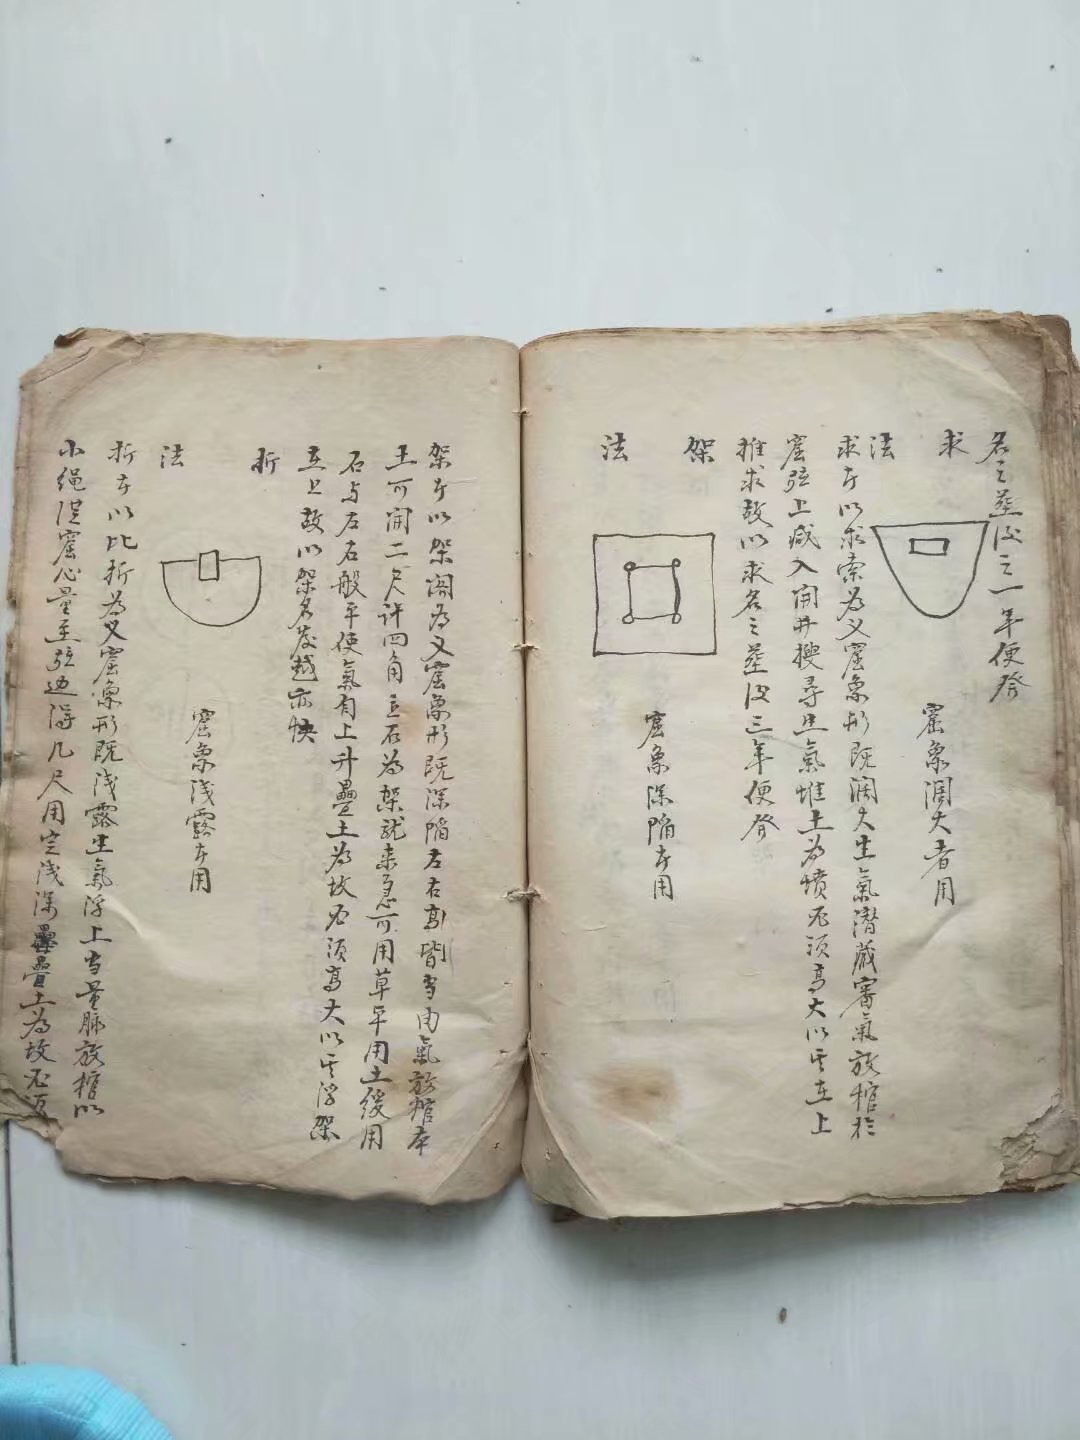 名之葬後之一年便發
求法
窟象濶大者用
求者以求索為义窟象形既濶大生氣潜藏審氣放棺於
窟弦上减入開井搜尋生氣堆土為墳不須高大以其在上
推求故以求名之葬後三年便發
架法
窟象深陷者用
架者以架阁為义窟象形既深陷左右高皆當由氣放棺本
王可開二尺许四角立石為架就来急可用草平用土缓用
石与左右般平使氣自上升疊土為坟不須高大以其浮架
立上故以架名發越亦快
折法
窟象浅露者用
折者以比折為义窟象形既浅露生氣浮上当量脉放棺以
小绳従窟心量至弦边得几尺用定浅深疊土為坟不須